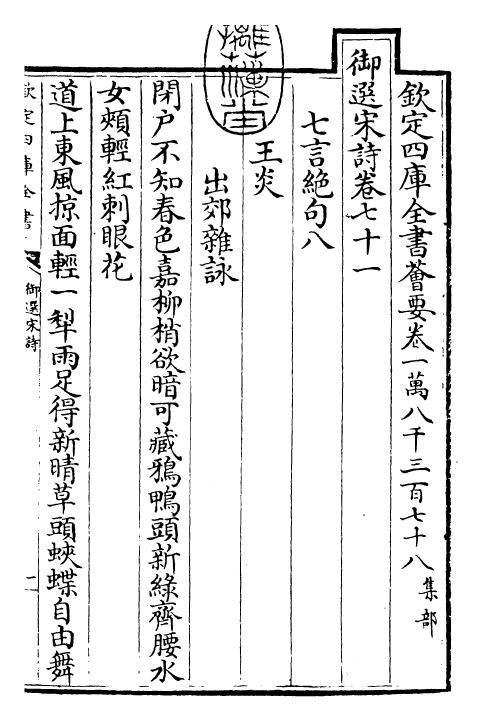 欽定四庫全書薈要卷一萬八千三百七十八集部
御選宋詩卷七十一
七言絶句八
王炎
出郊雜詠
閉户不知春色嘉柳梢欲暗可藏鴉鴨頭新綠齊腰水
女頰輕紅刺眼花
道上東風掠面輕一犁雨足得新晴草頭蛺蝶自由舞
欽定四庫全書
御選宋詩
一